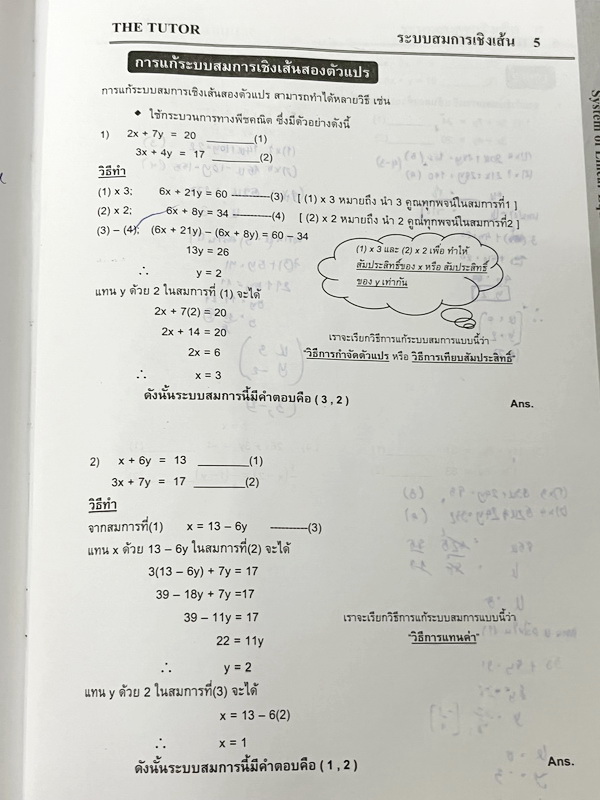 THE TUTOR
ระบบสมการเชิงเส้น 5
การแก้ระบบสมการเชิงเส้นสองตัวแปร
การแก้ระบบสมการเชิงเส้นสองตัวแปร สามารถทำได้หลายวิธี เช่น
◆ ใช้กระบวนการทางพีชคณิต ซึ่งมีตัวอย่างดังนี้
1) 2x + 7y = 20 ________(1)
3x + 4y = 17 ________(2)
วิธีทำ
(1) x 3; 6x + 21y = 60 ----------(3) [ (1) x 3 หมายถึง นำ 3 คูณทุกพจน์ในสมการที่1 ]
(2) x 2; 6x + 8y = 34 ----------(4) [ (2) x 2 หมายถึง นำ 2 คูณทุกพจน์ในสมการที่2 ]
(3) – (4); (6x + 21y) – (6x + 8y) = 60 – 34
13y = 26
∴ y = 2
(1) x 3 และ (2) x 2 เพื่อ ทำให้
สัมประสิทธิ์ของ x หรือ สัมประสิทธิ์
ของ y เท่ากัน
แทน y ด้วย 2 ในสมการที่ (1) จะได้
2x + 7(2) = 20
2x + 14 = 20
2x = 6
∴ x = 3
เราจะเรียกวิธีการแก้ระบบสมการแบบนี้ว่า
"วิธีการกำจัดตัวแปร หรือ วิธีการเทียบสัมประสิทธิ์"
ดังนั้นระบบสมการนี้มีคำตอบคือ ( 3 , 2 )
Ans.
2) x + 6y = 13 ________(1)
3x + 7y = 17 ________(2)
วิธีทำ
จากสมการที่(1) x = 13 – 6y ----------(3)
แทน x ด้วย 13 – 6y ในสมการที่(2) จะได้
3(13 – 6y) + 7y = 17
39 – 18y + 7y =17
39 – 11y = 17
22 = 11y
∴ y = 2
เราจะเรียกวิธีการแก้ระบบสมการแบบนี้ว่า
"วิธีการแทนค่า"
แทน y ด้วย 2 ในสมการที่(3) จะได้
x = 13 – 6(2)
∴ x = 1
ดังนั้นระบบสมการนี้มีคำตอบคือ ( 1 , 2 )
Ans.